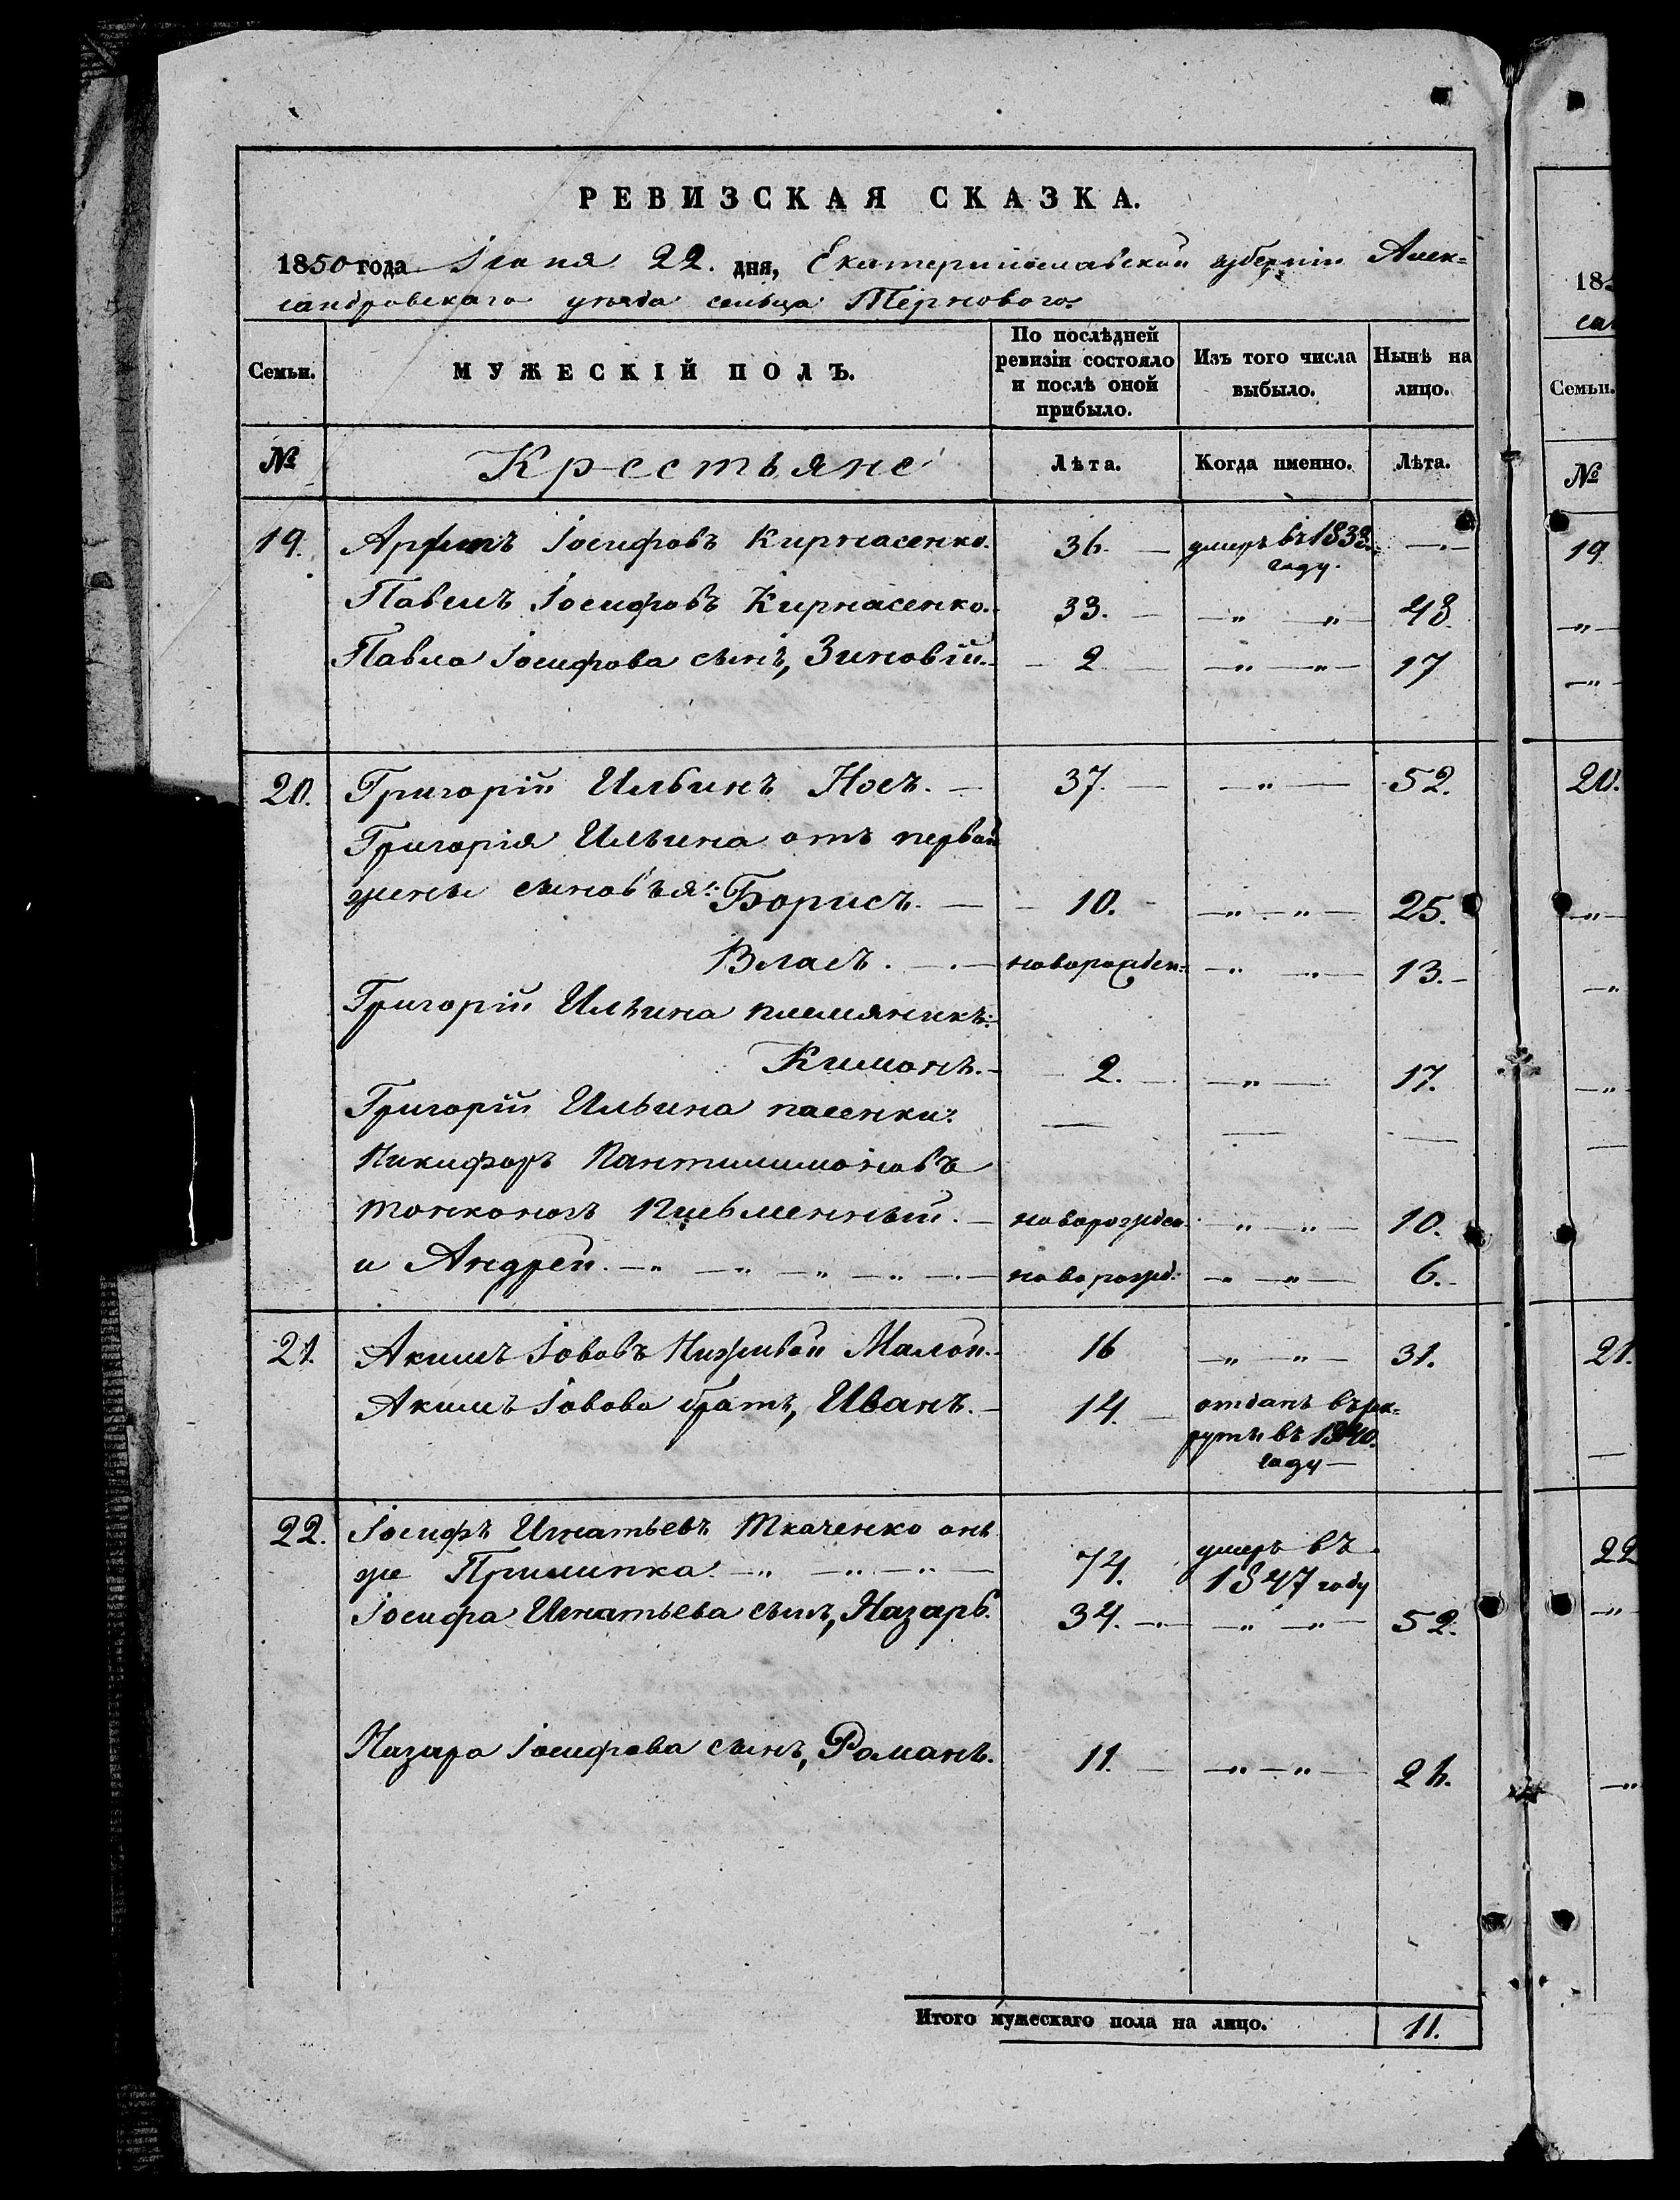 РЕВИЗСКАЯ СКАЗКА.
1850 года Іюня 22. дня, Екатеринославской губерніи Алек=
сандровскаго уѣзда сельца Тернового.
Семьи.
МУЖЕСКІЙ ПОЛЪ.
По послѣдней ревизіи состояло и послѣ оной прибыло.
Изъ того числа выбыло.
Нынѣ на лицо.
№ Крестьяне Лѣта. Когда именно. Лѣта.
19. Іосифовъ Кирнасенко. 36. — умеръ въ 183 году. —
Павелъ Іосифовъ Кирнасенко. 33. — „ „ 48
Павла Іосифова сынъ, Зиновій. 2 — „ „ 17
20. Григорій Ильинъ Носъ. — 37. — „ — 52.
Григорія Ильина отъ первой
жены сыновья: Борисъ. — 10. — „ „ — 25.
Власъ. — новорожден: — „ „ — 13.
Григорій Ильина племяникъ:
Кимонъ. — 2. — „ — 17.
Григорій Ильина пасенки: — — —
Никифоръ Пантилимоновъ
Тонконогъ Письменный. — новорожден. — „ „ — 10.
и Андрей. — „ — „ — „ — „ — новорожд: — „ — 6.
21. Акимъ Іововъ Малой. 16 — „ „ — 31.
Акимъ Іовова братъ, Иванъ. — 14. — отданъ въ рек=
руты въ 1840.
году —
22. Іосифъ Игнатьевъ Ткаченко онъ
же Прилипка. — „ — „ — „ — 74. умеръ въ
1847 году
Іосифа Игнатьева сынъ, Назаръ. 34. — „ „ — 52.
Назара Іосифова сынъ, Романъ. 11. — „ — „ — 26.
Итого мужескаго пола на лицо. 11.
18
са
Семьи.
№
19
„
20.
„
21.
22
„